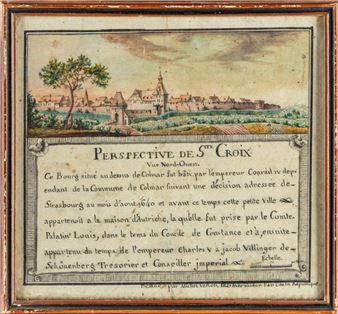 PERSPECTIVE DE Ste CROIX
Vue Nord-Ouest.
Ce Bourg situé au dessus de Colmar fut bâti par l'empereur Conrad IV dep-
endant de la Commune de Colmar suivant une décision adressée de-
Strasbourg au mois d'aout 1680 et avant ce temps cette petite Ville
appartenoit a la maison d'Autriche, la qu'elle fut prise par le Comte
Palatin Louis, dans le tems du Concile de Constance et a ensuite
appartenu du temps de l'empereur Charles V a jacob Villinger de
Schönenberg Tresorier et Conseiller jmperial
Echelle.
par Michel